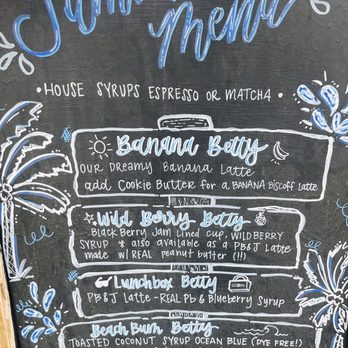 Summer
menu
• HOUSE SYRUPS ESPRESSO OR MATCHA •
Banana Betty
OUR DREAMY BANANA LATTE
add COOKIE BUTTER FOR a BANANA BISCOFF LATTE
Wild Berry Betty
BLACK BERRY JAM LINED CUP, WILDBERRY
SYRUP + also available as a PB&J LATTE
made w/ REAL peanut butter (!!)
Lunchbox Betty
PB&J LATTE - REAL PB & BLUEBERRY SYRUP
BEACH BUM BETTY
TOASTED COCONUT SYRUP OCEAN BLUE (DYE FREE!)